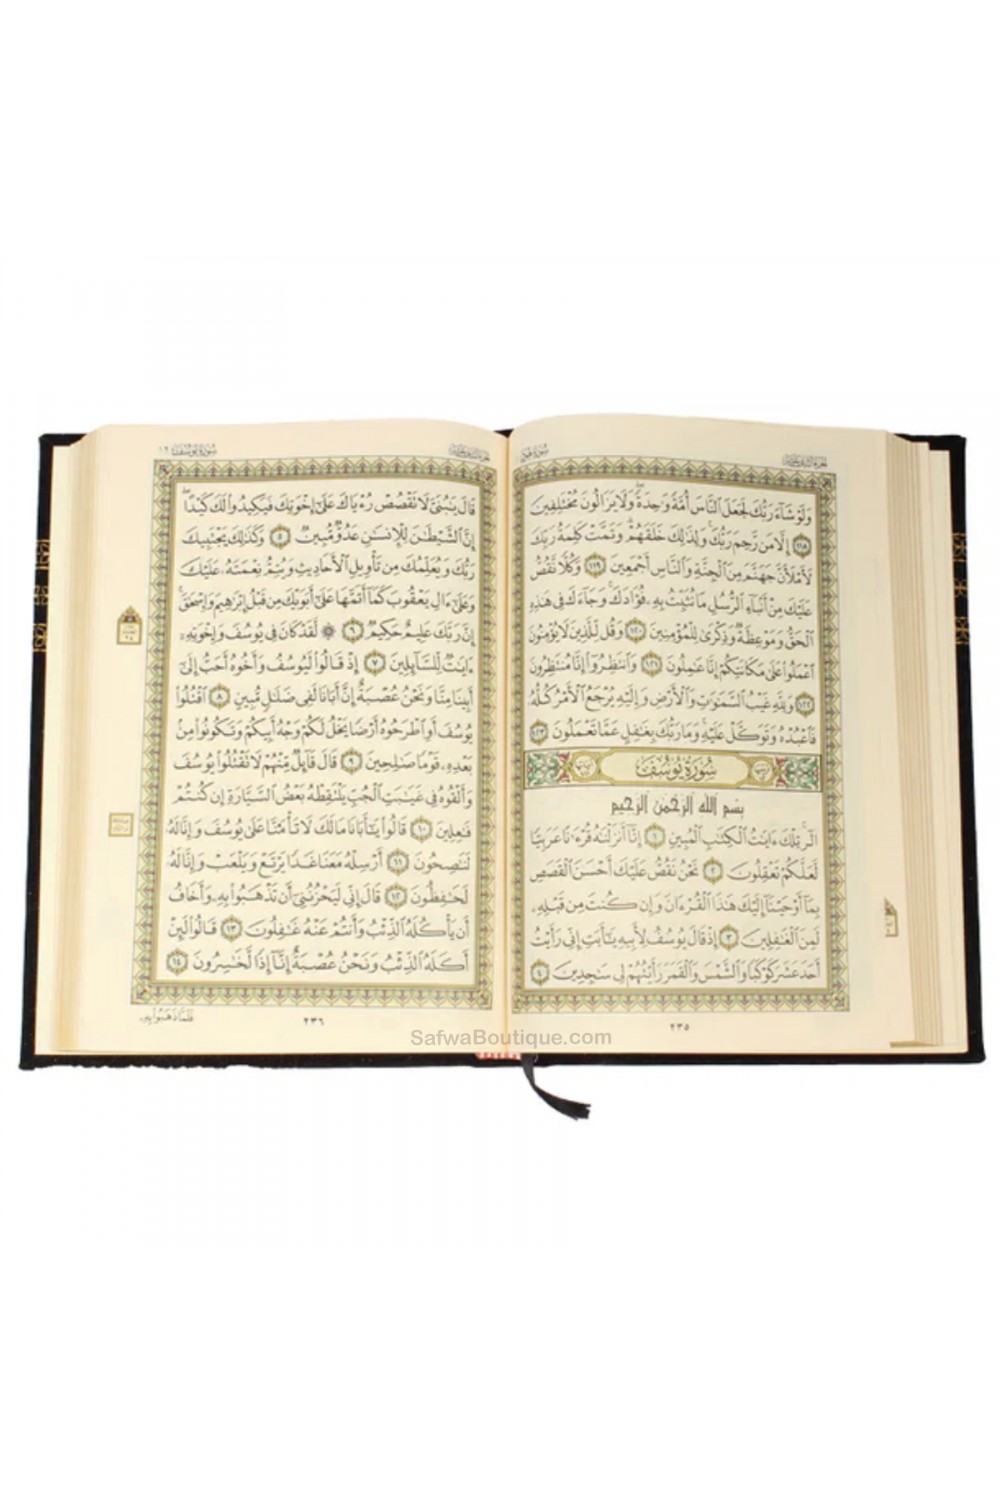 سورة هود
ولو شاء ربك لجعل الناس أمة وٰحدة ولا يزالون مختلفين
١١٨ إلا من رحم ربك ولذٰلك خلقهم وتمت كلمة ربك
لأملأن جهنم من الجنة والناس أجمعين ١١٩ وكلا نقص
عليك من أنباء الرسل ما نثبت به فؤادك وجاءك في هٰذه
الحق وموعظة وذكرىٰ للمؤمنين ١٢٠ وقل للذين لا يؤمنون
اعملوا علىٰ مكانتكم إنا عٰملون ١٢١ وانتظروا إنا منتظرون
١٢٢ ولله غيب السمٰوٰت والأرض وإليه يرجع الأمر كله
فاعبده وتوكل عليه وما ربك بغٰفل عما تعملون ١٢٣
سورة يوسف
بسم الله الرحمٰن الرحيم
الر تلك ءايٰت الكتٰب المبين ١ إنا أنزلنٰه قرءٰنا عربيا
لعلكم تعقلون ٢ نحن نقص عليك أحسن القصص
بما أوحينا إليك هٰذا القرءان وإن كنت من قبله
لمن الغٰفلين ٣ إذ قال يوسف لأبيه يٰأبت إني رأيت
أحد عشر كوكبا والشمس والقمر رأيتهم لي سٰجدين ٤
٢٣٥
سورة يوسف ١٢
قال يٰبني لا تقصص رءياك علىٰ إخوتك فيكيدوا لك كيدا
إن الشيطٰن للإنسٰن عدو مبين ٥ وكذٰلك يجتبيك
ربك ويعلمك من تأويل الأحاديث ويتم نعمته عليك
وعلىٰ ءال يعقوب كما أتمها علىٰ أبويك من قبل إبرٰهيم وإسحٰق
إن ربك عليم حكيم ٦ ۞ لقد كان في يوسف وإخوته
ءايٰت للسائلين ٧ إذ قالوا ليوسف وأخوه أحب إلىٰ
أبينا منا ونحن عصبة إن أبانا لفي ضلٰل مبين ٨ اقتلوا
يوسف أو اطرحوه أرضا يخل لكم وجه أبيكم وتكونوا من
بعده قوما صٰلحين ٩ قال قائل منهم لا تقتلوا يوسف
وألقوه في غيٰبت الجب يلتقطه بعض السيارة إن كنتم
فٰعلين ١٠ قالوا يٰأبانا ما لك لا تأمنا علىٰ يوسف وإنا له
لنٰصحون ١١ أرسله معنا غدا يرتع ويلعب وإنا له
لحٰفظون ١٢ قال إني ليحزنني أن تذهبوا به وأخاف
أن يأكله الذئب وأنتم عنه غٰفلون ١٣ قالوا لئن
أكله الذئب ونحن عصبة إنا إذا لخٰسرون ١٤
فلما ذهبوا به
٢٣٦
SafwaBoutique.com